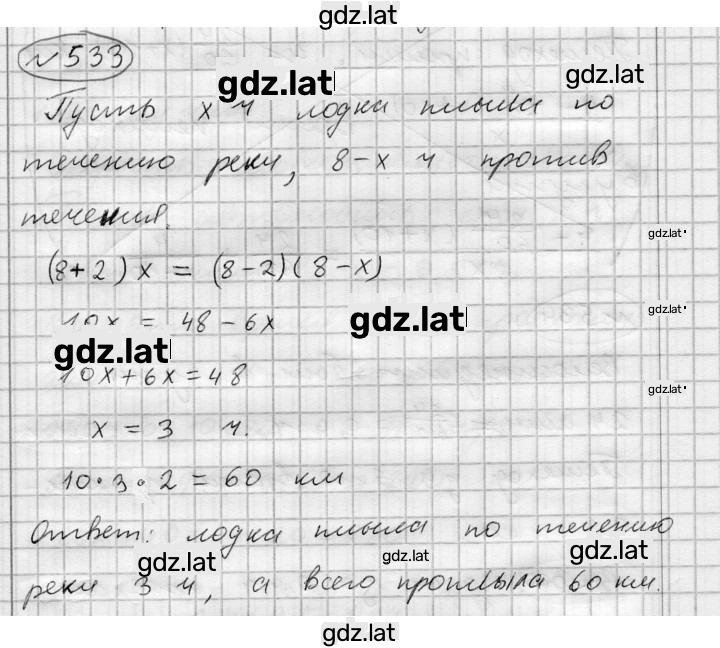 gdz.lat
№ 533
gdz.lat
gdz.lat
Пусть x ч лодка плыла по
течению реки, 8-x ч против
течения.
gdz.lat
(8+2)x = (8-2)(8-x)
gdz.lat
10x = 48-6x
gdz.lat
gdz.lat
10x+6x=48
gdz.lat
x = 3 ч.
10·3·2 = 60 км
Ответ: лодка плыла по течению
gdz.lat
gdz.lat
gdz.lat
реки 3 ч, а всего проплыла 60 км.
gdz.lat